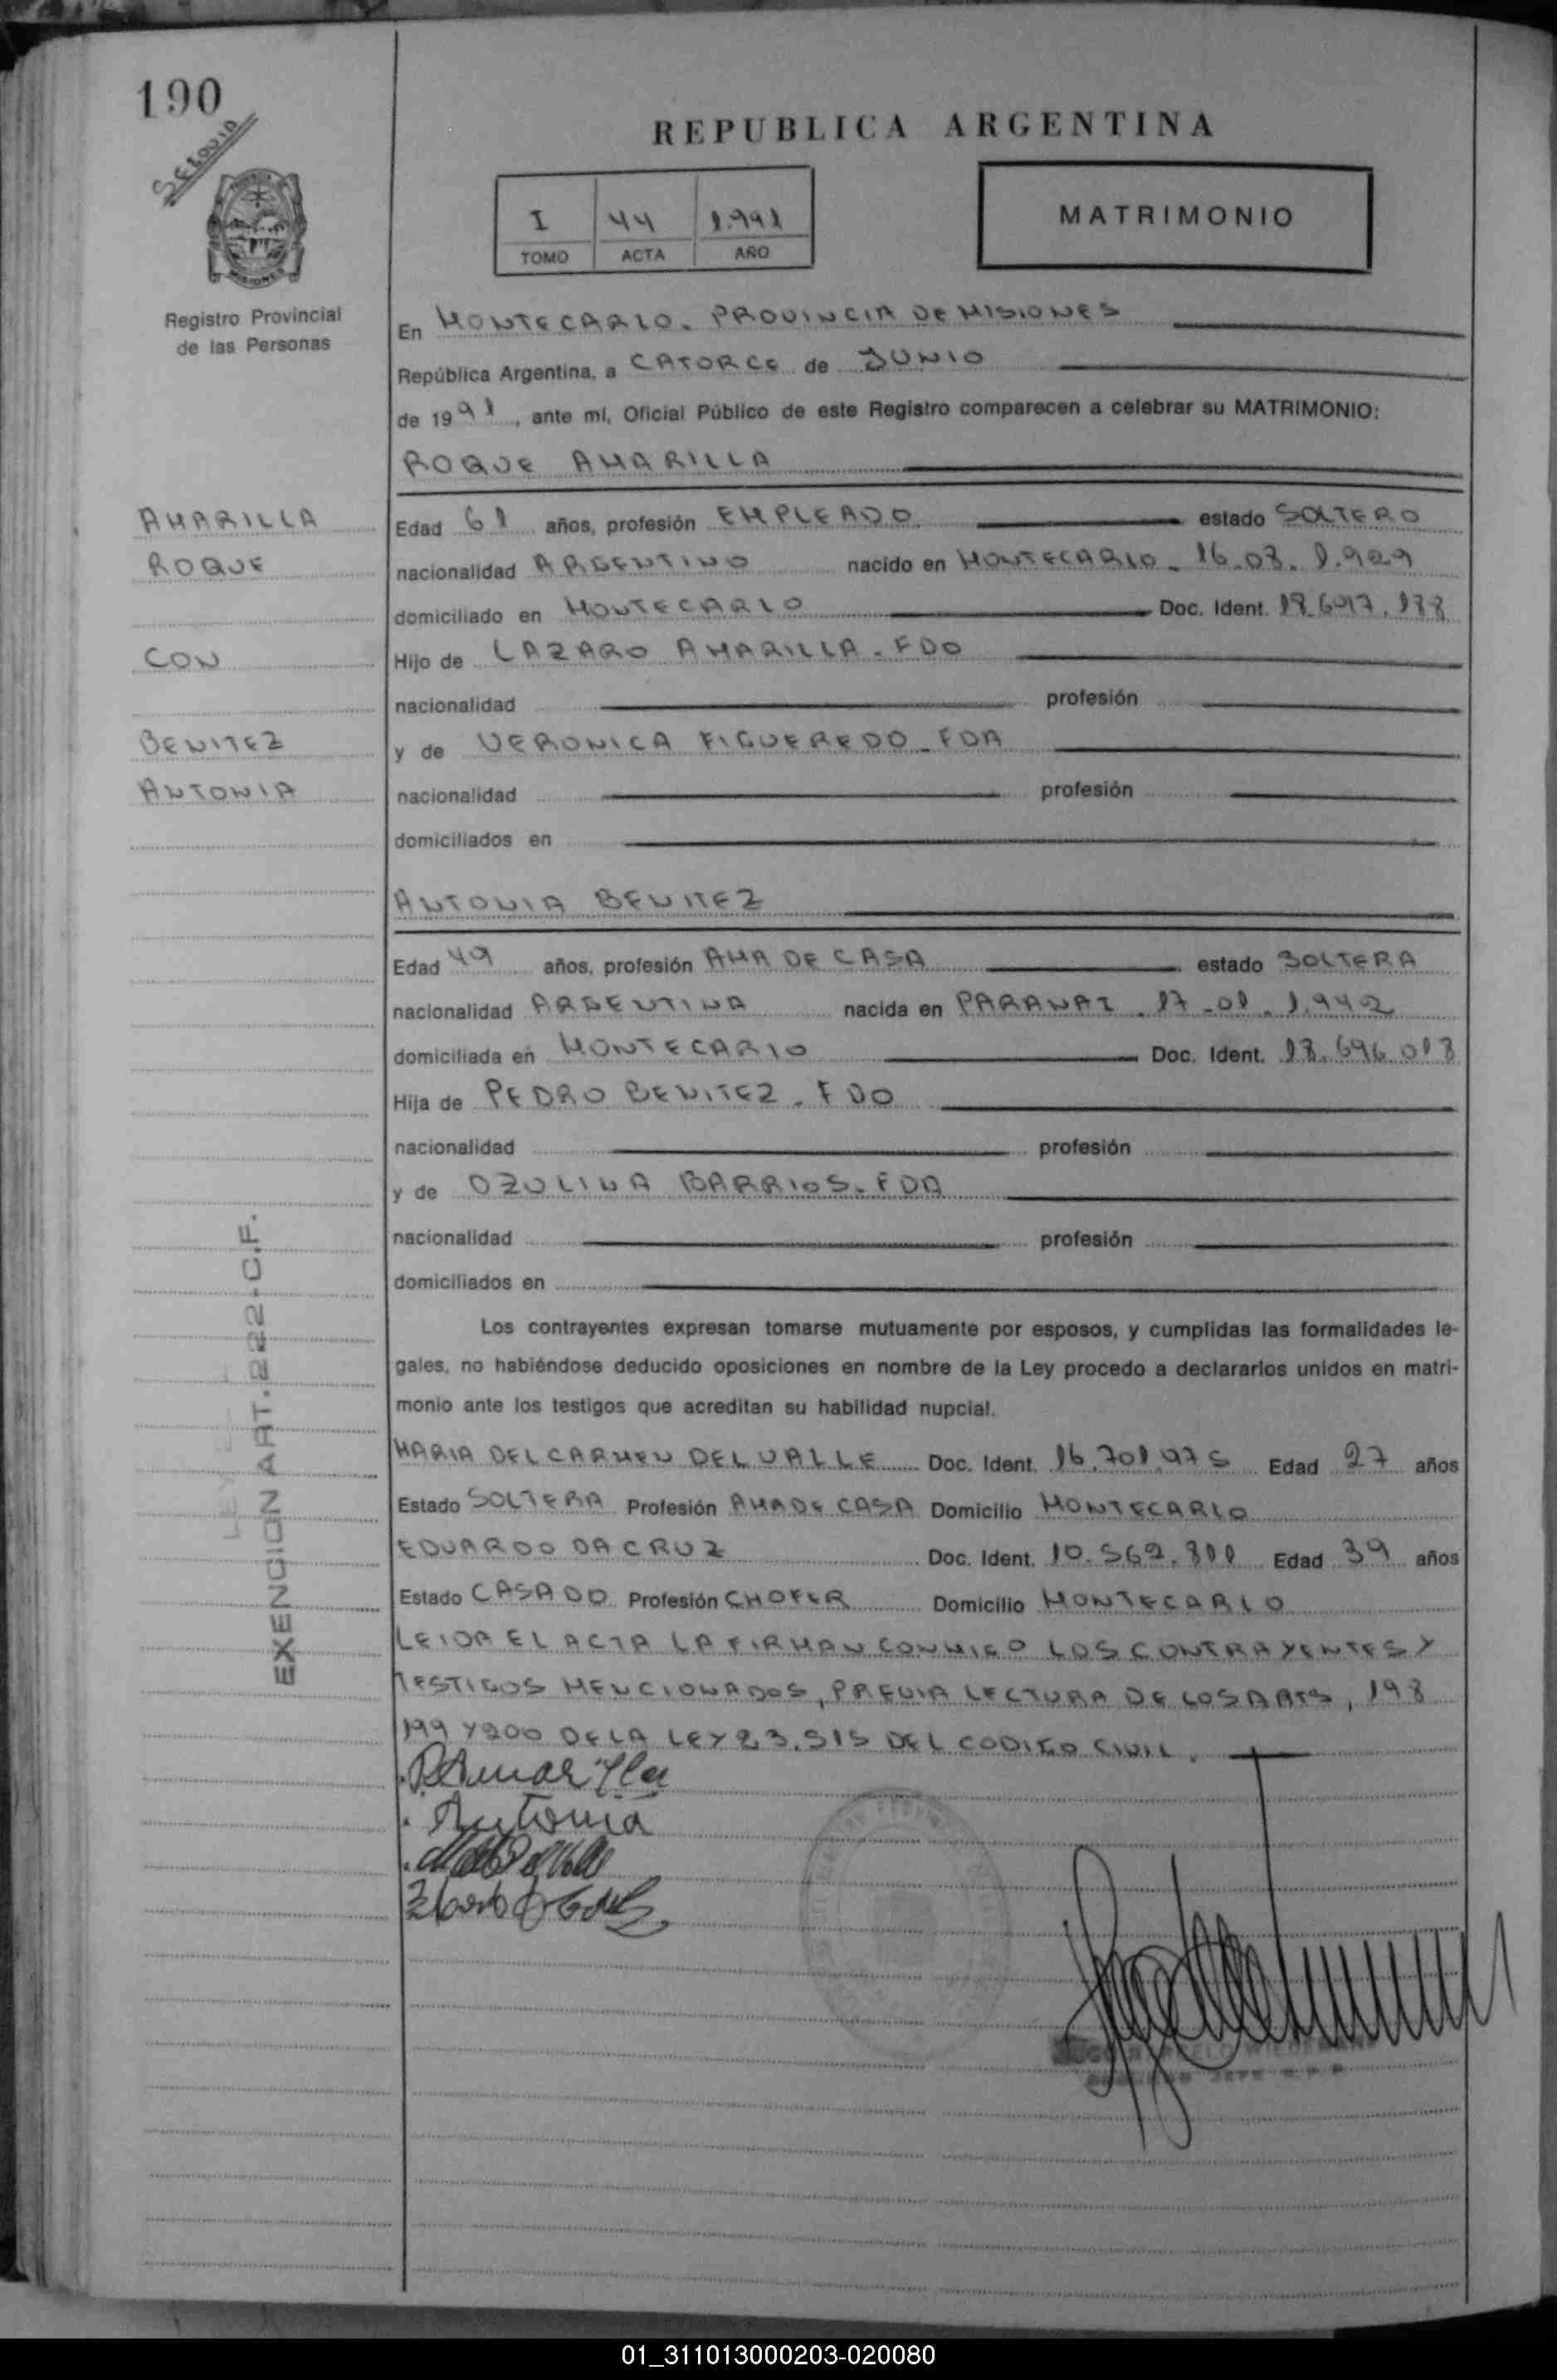 190
REPUBLICA ARGENTINA
I 44 1.991
TOMO ACTA AÑO
MATRIMONIO
MISIONES
Registro Provincial
de las Personas
En MONTECARLO. PROVINCIA DE MISIONES
República Argentina, a CATORCE de JUNIO
de 1991, ante mí, Oficial Público de este Registro comparecen a celebrar su MATRIMONIO:
ROQUE AMARILLA
AMARILLA
ROQUE
CON
BENITEZ
ANTONIA
Edad 61 años, profesión EMPLEADO estado SOLTERO
nacionalidad ARGENTINO nacido en MONTECARLO. 16.08.1.929
domiciliado en MONTECARLO Doc. Ident.
Hijo de LAZARO AMARILLA. FDO
nacionalidad profesión
y de VERONICA FIGUEREDO. FDA
nacionalidad profesión
domiciliados en
ANTONIA BENITEZ
Edad 49 años, profesión AMA DE CASA estado SOLTERA
nacionalidad ARGENTINA nacida en PARANAI. 17-01.1.942
domiciliada en MONTECARLO Doc. Ident. 18.696.018
Hija de PEDRO BENITEZ. FDO
nacionalidad profesión
y de OZULINA BARRIOS. FDA
nacionalidad profesión
domiciliados en
Los contrayentes expresan tomarse mutuamente por esposos, y cumplidas las formalidades le-
gales, no habiéndose deducido oposiciones en nombre de la Ley procedo a declararlos unidos en matri-
monio ante los testigos que acreditan su habilidad nupcial.
MARIA DEL CARMEN DEL VALLE Doc. Ident. 16.701.975 Edad 27 años
Estado SOLTERA Profesión AMA DE CASA Domicilio MONTECARLO
EDUARDO DA CRUZ Doc. Ident. 10.562.811 Edad 39 años
Estado CASADO Profesión CHOFER Domicilio MONTECARLO
LEIDA EL ACTA LA FIRMAN CONMIGO LOS CONTRAYENTES Y
TESTIGOS MENCIONADOS, PREVIA LECTURA DE LOS ARTS, 198
199 Y 200 DE LA LEY 23.515 DEL CODIGO CIVIL.
EXENCION ART. 222 · C.F.
Antonia
01_311013000203-020080